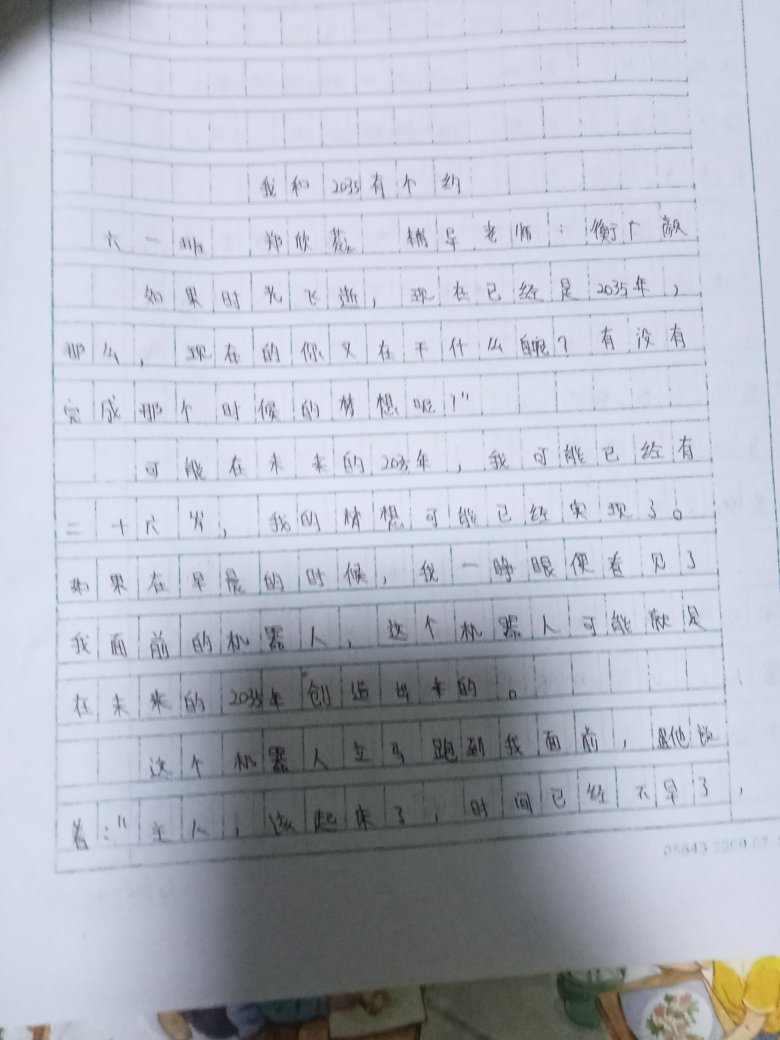 我和2035有个约
六一班 郑欣 辅导老师：衡
如果时光飞逝，现在已经是2035年，
那么，现在的你又在干什么呢？有没有
完成那个时候的梦想呢？"
可能在未来的2035年，我可能已经有
二十六岁，我的梦想可能已经实现了。
如果在早晨的时候，我一睁眼便看见了
我面前的机器人，这个机器人可能就是
在未来的2035年创造出来的。
这个机器人立马跑到我面前，跟他说
着："主人，该起来了，时间已经不早了，